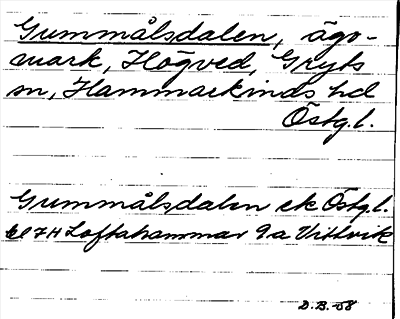 Gummålsdalen, ägo-
mark, Högved, Gryts
sn, Hammarkinds hd
Östg.l.
Gummålsdalen ek Östg.l.
bl 7H Loftahammar 9a Vitlvik
D.B.-58